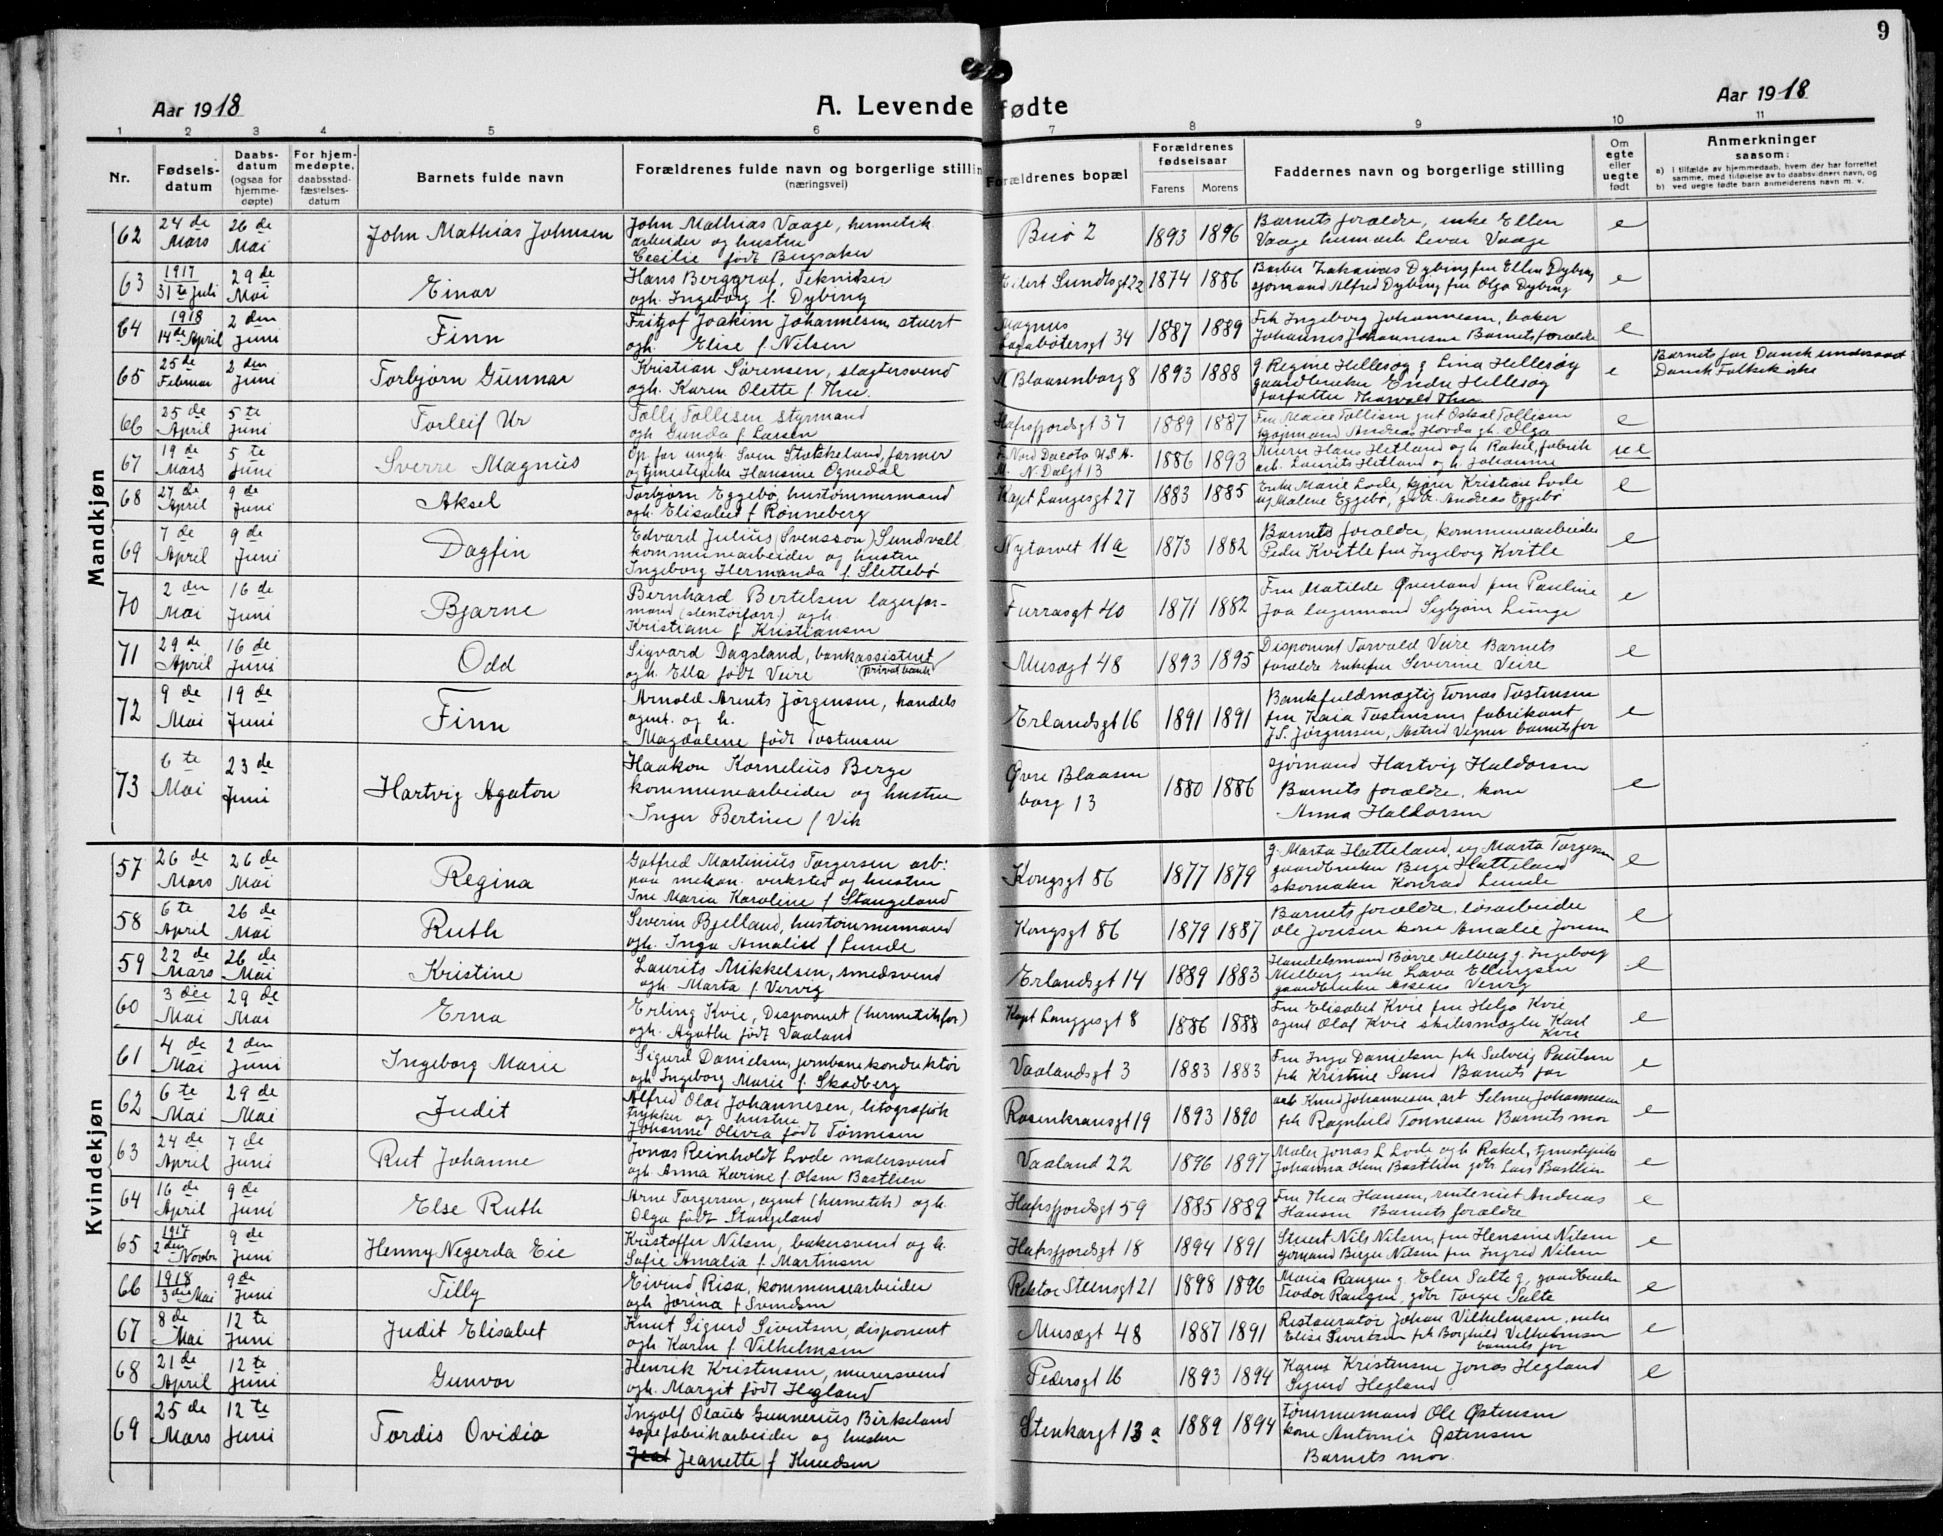 9
Aar 1918
A. Levende fødte
Aar 1918
1 2 3 4 5 6 7 8 9 10 11
Nr.
Fødsels-
datum
Daabs-
datum
(ogsaa for
hjemme-
døpte)
For hjem-
medøpte,
daabsstad-
fæstelses-
datum
Barnets fulde navn
Forældrenes fulde navn og borgerlige stillin
(næringsvei)
Forældrenes bopæl
Forældrenes
fødselsaar
Farens Morens
Faddernes navn og borgerlige stilling
Om
egte
eller
uegte
født
Anmerkninger
saasom:
a) I tilfælde av hjemmedaab, hvem der har forrettet
samme, med tilføielse av to daabsvidners navn, og
b) ved uegte fødte barn anmelderens navn m. v.
Mandkjøn
62 24 de Mars 26 de Mai John Mathias Johnsen
John Mathias Vaage, hermetik
arbeider og hustru
Cecilie født Bugsaker
Buø 2 1893 1896
Barnets forældre, enke Ellen
Vaage Levar Vaage
e
63 1917 31te Juli 29 de Mai Einar
Hans Berggraf, Tekniker
ogh. Ingeborg f. Dybing
Eilert Sundtsgt 22 1874 1886
Barber Zakarias Dybing fru Ellen Dybing
sjømand Alfred Dybing fru Olga Dybing
e
64 1918 14de April 2 den Juni Finn
Fritjof Joakim Johannesen, stuert
ogh. Elise f. Nilsen
Magnus
Lagabøtersgt 34 1887 1889
Frk Ingeborg Johannesen, baker
Johannes Johannesen Barnets forældre
e
65 25 de Februar 2 den Juni Torbjørn Gunnar
Kristian Sørensen, slagtersvend
ogh. Karen Olette f. Thu
N Blaasenborg 8 1893 1888
g. Regine Hellesøy g Lina Hellesøy
gaardbruker Endre Hellesøy
forfatter Thorvald Thu
e
Barnets far Dansk undersaat
Dansk Folkekirke
66 25 de April 5 te Juni Torleif Ur
Tolli Tollisen styrmand
ogh. Gunda f. Larsen
Hafrsfjordsgt 37 1889 1887
Fru Marie Tollisen gut Oskar Tollisen
kjøpmand Andreas Hovda gh. Olga
e
67 19 de Mars 5 te Juni Sverre Magnus
Op. far ungk. Sven Stokkeland, farmer
og tjenestepike Hansine Ognedal
F. Nord Dacota U.S.A.
M. N. Dalgt 13 1886 1893
Murer Hans Hetland og h Rakel, fabrik
arb. Laurits Hetland og h. Johanne
uel
68 27 de April 9 de Juni Aksel
Torbjørn Eggebø, hustømmermand
ogh. Elisabet f Rønneberg
Kapt Langesgt 27 1883 1885
Enke Marie Lode, Kristine Lode
ug Malene Eggebø, gdbr. Andreas Eggebø
e
69 7 de April 9 de Juni Dagfin
Edvard Julius (Svensson) Sundvall
kommunearbeider og hustru
Ingeborg Hermanda f. Slettebø
Nytorvet 11a 1873 1882
Barnets forældre, kommunearbeider
Peder Kvitle fru Ingeborg Kvitle
e
70 2 den Mai 16 de Juni Bjarne
Bernhard Bertelsen lagerfor-
mand ogh.
Kristiane f Kristiansen
Furrasgt 40 1871 1882
Fru Matilde Øverland fru Pauline
Joa lagermand Sigbjørn Lunge
e
71 29 de April 16 de Juni Odd
Sigvard Dagsland, bankassistent
ogh. Ella født Veire (Privatbank)
Musægt 48 1893 1895
Disponent Torvald Veire Barnets
forældre enkefru Severine Veire
e
72 9 de Mai 19 de Juni Finn
Arnold Arents Jørgensen, handels
agent. og h.
Magdalene født Tostensen
Erlandsgt 16 1891 1891
Bankfuldmægtig Tomas Tostensen
fru Kaia Tostensen, fabrikant
J. S. Jørgensen, Astrid Vegner barnets far
e
73 6 te Mai 23 de Juni Hartvig Agaton
Haakon Kornelius Berge
kommunearbeider og hustru
Inger Bertine f Vik
Øvre Blaasen
borg 13 1880 1886
sjømand Hartvig Haldorsen
Barnets forældre, kone
Anna Haldorsen
e
Kvindekjøn
57 26 de Mars 26 de Mai Regina
Gotfred Martinius Torgersen arb:
paa mekan. verksted og hustru
Ine Maria Karoline f Stangeland
Kongsgt 86 1877 1879
g. Marta Hatteland, ug Marta Torgersen
gaardbruker Berge Hatteland
skomaker Konrad Lunde
e
58 6 te April 26 de Mai Ruth
Severin Bjelland, hustømmermand
ogh. Inga Amalie f Lunde
Kongsgt 86 1879 1887
Barnets forældre, løsarbeider
Ole Jonsen kone Amalie Jonsen
e
59 22 de Mars 26 de Mai Kristine
Laurits Mikkelsen, smedsvend
ogh. Marta f. Vervig
Erlandsgt 14 1889 1883
Handelsmand Børre Melberg g. Ingeborg
Melberg enke Lava Ellingsen
gaardbruker Assens Vervig
e
60 3 die Mai 29 de Mai Erna
Erling Kvie, Disponent (hermetikfor)
ogh. Agathe født Vaaland
Kapt Langgesgt 8 1886 1888
Fru Elisabet Kvie fru Helga Kvie
agent Olaf Kvie skibsmægler Karl
Kvie
e
61 4 de Mai 2 den Juni Ingeborg Marie
Sigurd Danielsen, jernbanekonduktør
ogh. Ingeborg Marie f. Skadberg
Vaalandsgt 3 1883 1883
Fru Inga Danielsen frk Solveig Paulsen
frk Kristine Sund Barnets far
e
62 6 te Mai 29 de Mai Judit
Alfred Olai Johannesen, litografisk
trykker og hustru
Johanne Olivia født Tønnesen
Rosenkransgt 19 1893 1890
arb Knud Johannesen, arb Selmer Johannesen
frk Ragnhild Tønnesen Barnets mor
e
63 24 de April 7 de Juni Rut Johanne
Jonas Reinholdt Lode malersvend
ogh. Anna Karine f. Olsen Bastlien
Vaaland 22 1896 1897
Maler Jonas L Lode og h Rakel, tjenestepike
Johanna Olsen Bastlien gdbr Lars Bastlien
e
64 16 de April 9 de Juni Else Ruth
Arne Torgersen, agent (hermetik) og h.
Olga født Stangeland
Hafrsfjordsgt 59 1885 1889
Fru Thea Hansen, rentenist Andreas
Hansen Barnets forældre
e
65 1917 2den Novbr 9 de Juni Henny Negerda Eie
Kristoffer Nilsen, bakersvend og h.
Sofie Amalia f. Martinsen
Hafrsfjordsgt 18 1894 1891
Stuert Nils Nilsen, fru Hensine Nilsen
sjømand Berge Nilsen fru Ingrid Nilsen
e
66 1918 3die Mai 9 de Juni Tilly
Eivind Risa, kommunearbeider
ogh Jorina f Svendsen
Rektor Steensgt 21 1898 1896
Maria Rangen g. Elen Salte g, gaardbruker
Teodor Rangen, gdbr Torger Salte
e
67 8 de Mai 12 te Juni Judit Elisabet
Knut Sigurd Sivertsen, disponent
ogh. Karen f. Vilhelmsen
Musægt 48 1887 1891
Restauratør Johan Vilhelmsen, enke
Elise Sivertsen frk Borghild Vilhelmsen
barnets far
e
68 21 de April 12 te Juni Gunvor
Henrik Kristensen, murersvend
ogh. Margit født Hegland
Pedersgt 16 1893 1894
Karen Kristensen Jonas Hegland
Sigurd Hegland
e
69 25 de Mars 12 te Juni Tordis Ovidia
Ingolf Olaus Gunnerius Birkeland
sæpefabrikarbeider og hustru
Jeanette f Knudsen
Stenkargt 13 a 1889 1894
Tømmermand Ole Østensen
kone Antonie Østensen
Barnets mor